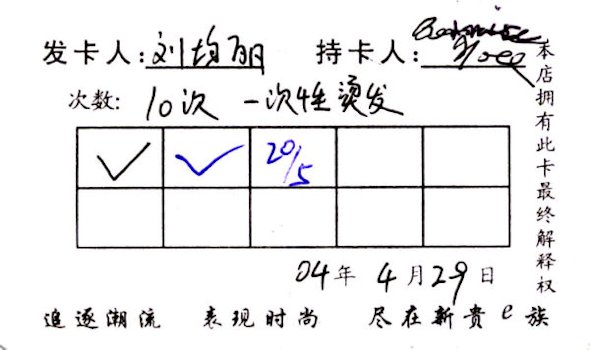 发卡人: 刘均丽 持卡人:
次数: 10次 一次性烫发
20/5
04年 4月29日
追逐潮流 表现时尚 尽在新贵e族
本店拥有此卡最终解释权